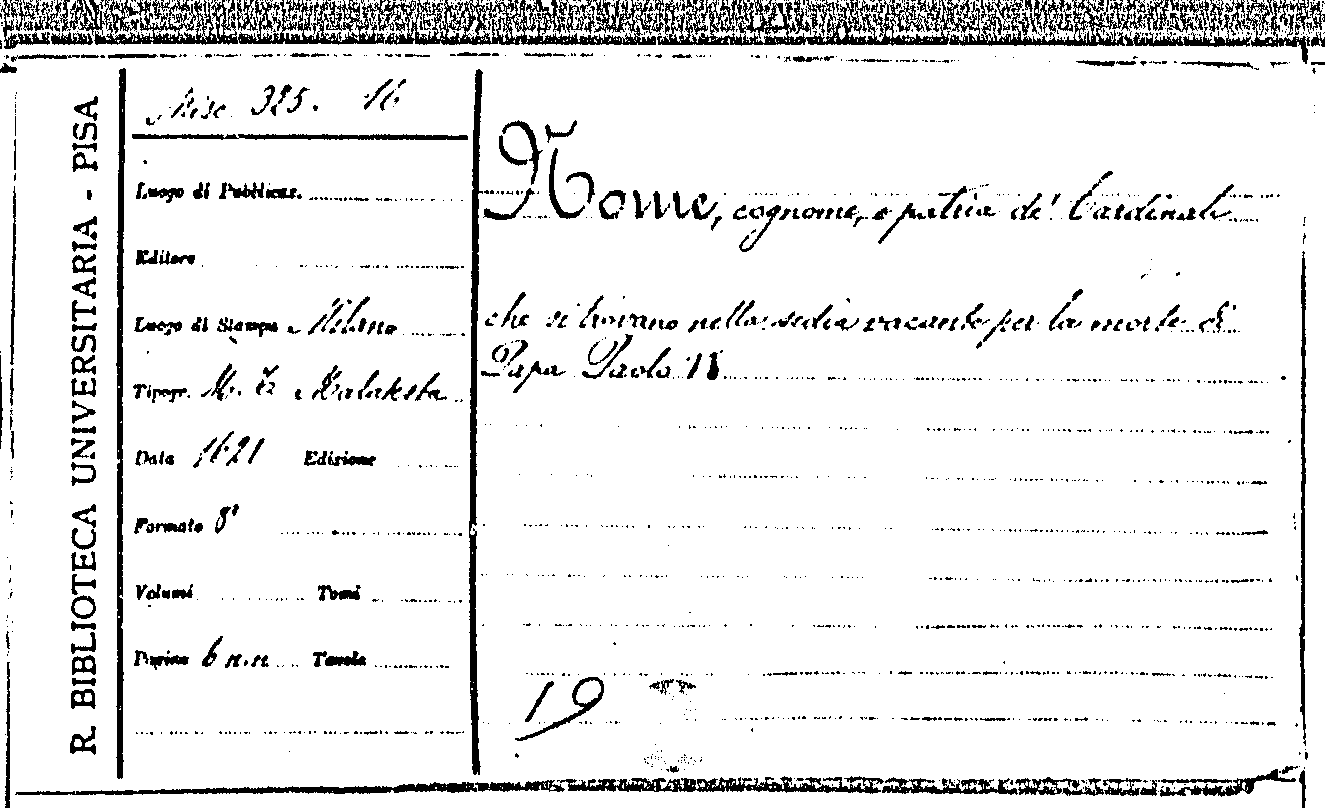 R. BIBLIOTECA UNIVERSITARIA - PISA
Misc. 325. 16
Luogo di Pubblicaz.
Editore
Luogo di Stampa Milano
Tipogr. M. T. Malatesta
Data 1621 Edizione
Formato 8°
Volumi Tomi
Pagine 6 n.n Tavole
Nome, cognome, e patria de' Cardinali
che si trovano nella sedia vacante per la morte di
Papa Paolo V
19